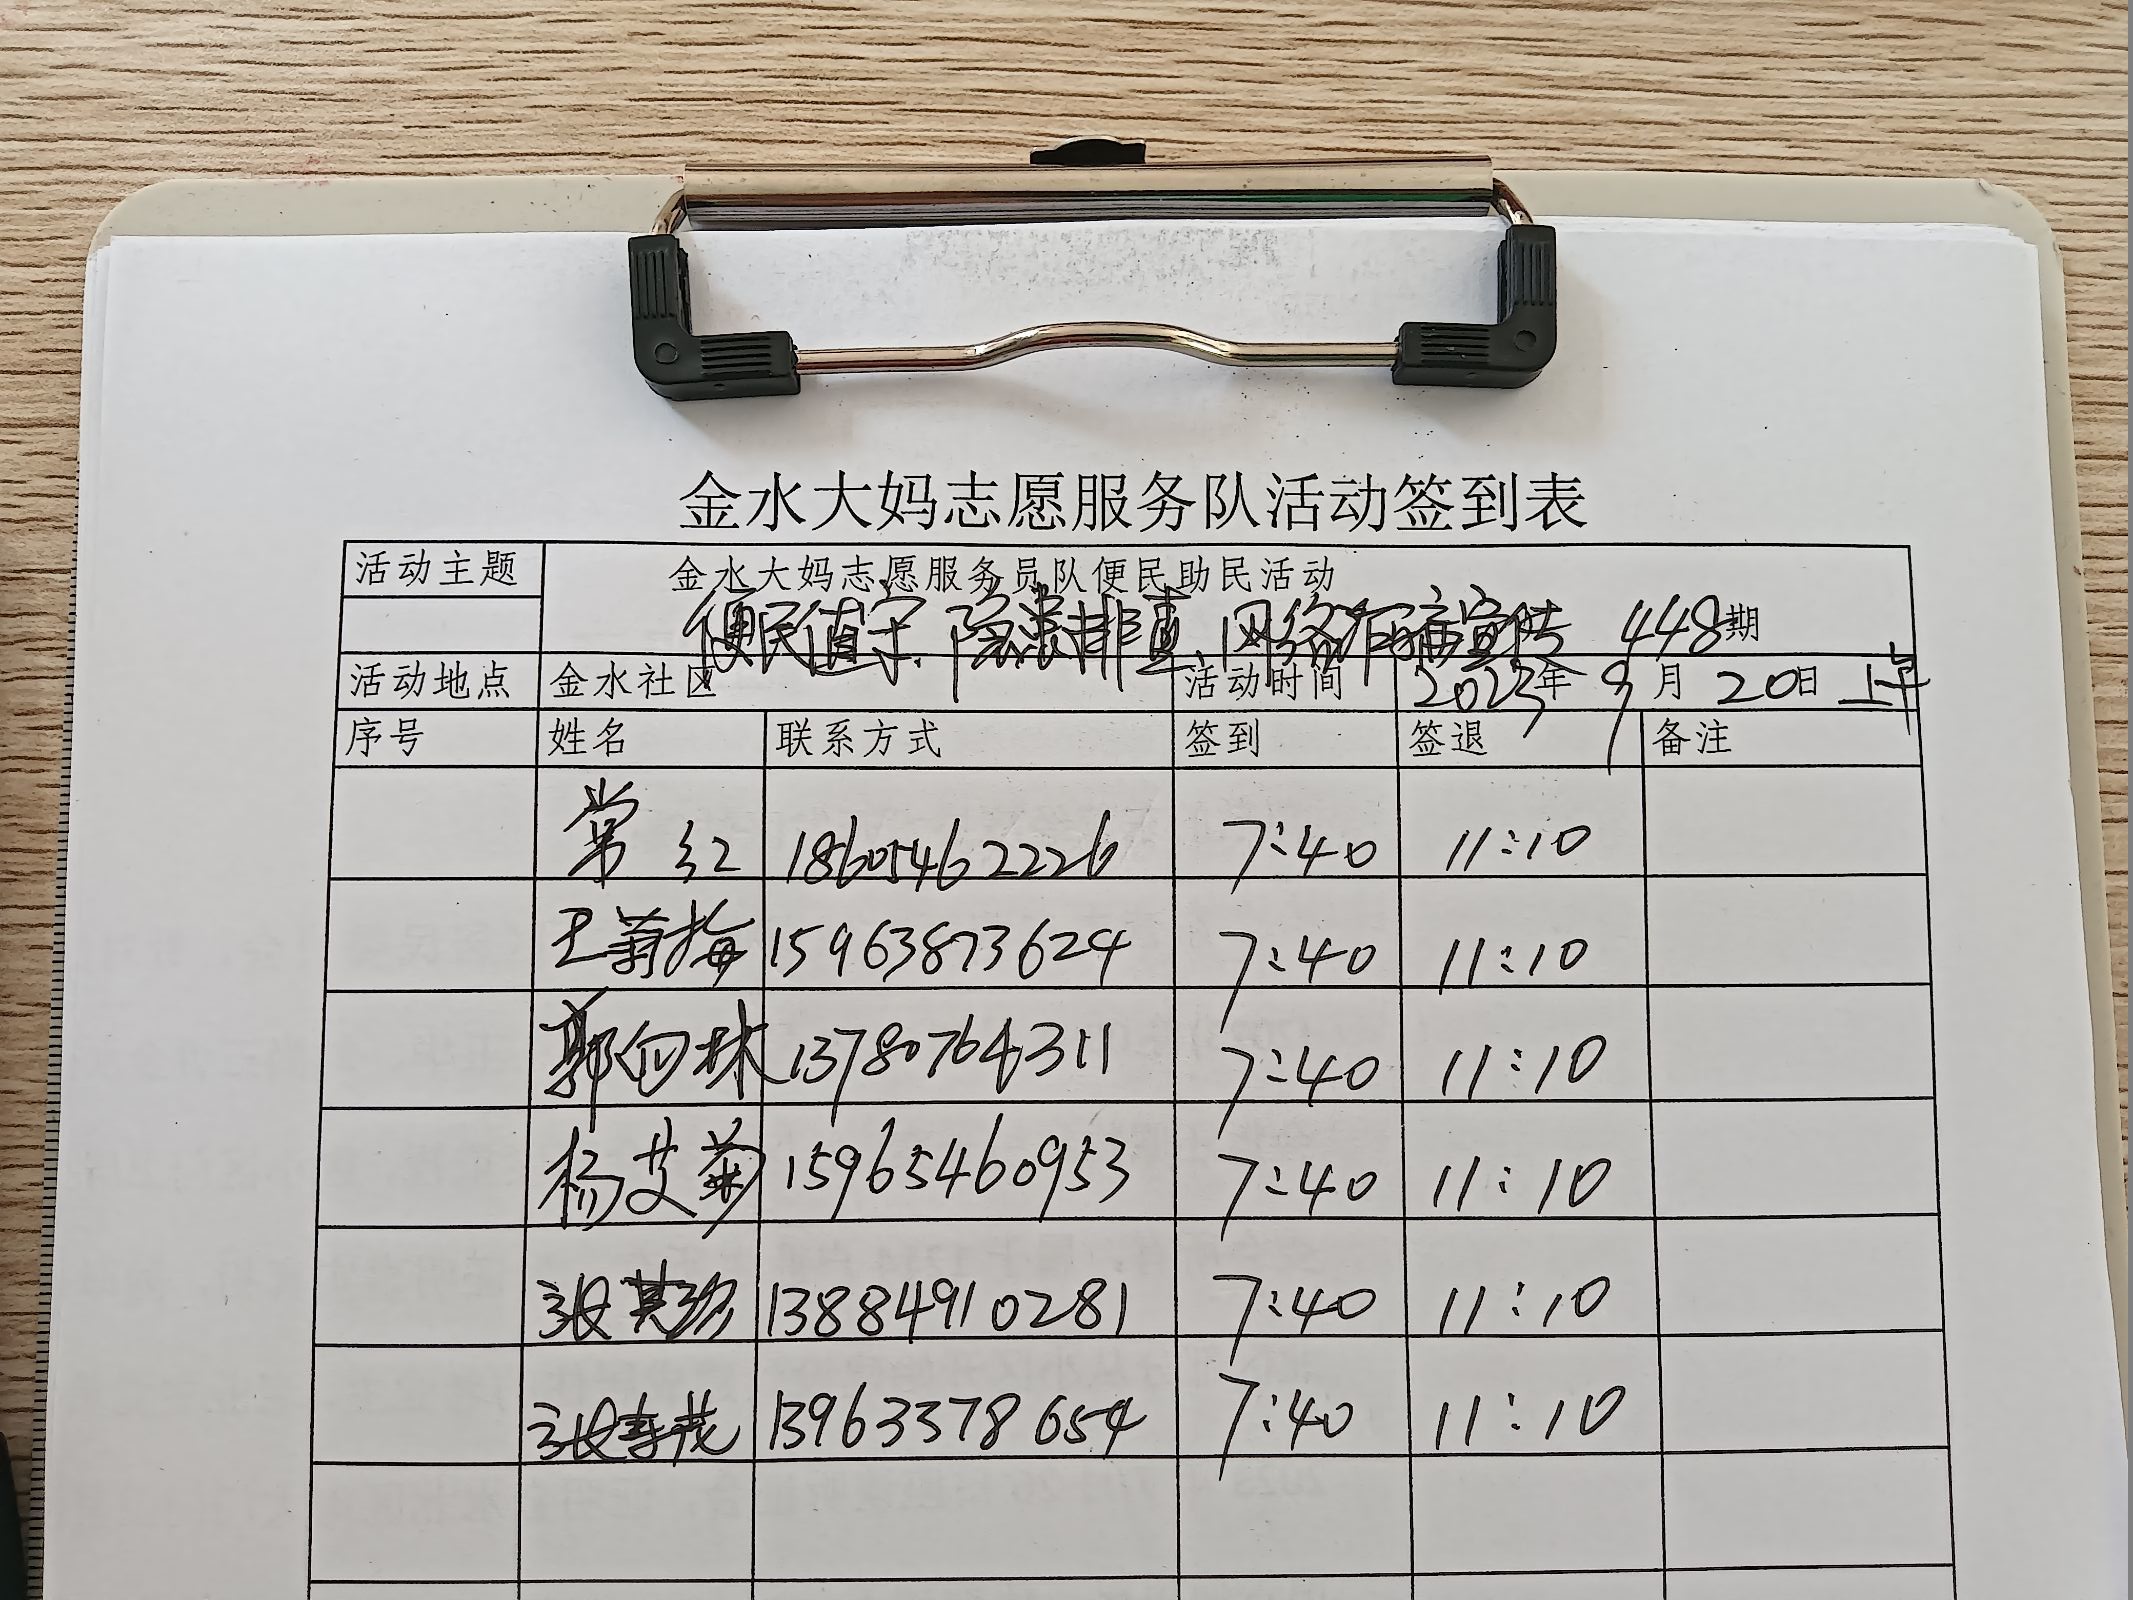 金水大妈志愿服务队活动签到表
活动主题 金水大妈志愿服务员队便民助民活动
便民值守、隐患排查、网络诈骗宣传 448期
活动地点 金水社区 活动时间 2023年9月20日上午
序号 姓名 联系方式 签到 签退 备注
常红 18605462226 7:40 11:10
王菊梅 15963873624 7:40 11:10
郭向林 13780764311 7:40 11:10
杨艾菊 15965460953 7:40 11:10
张其珍 13884910281 7:40 11:10
张春花 13963378654 7:40 11:10